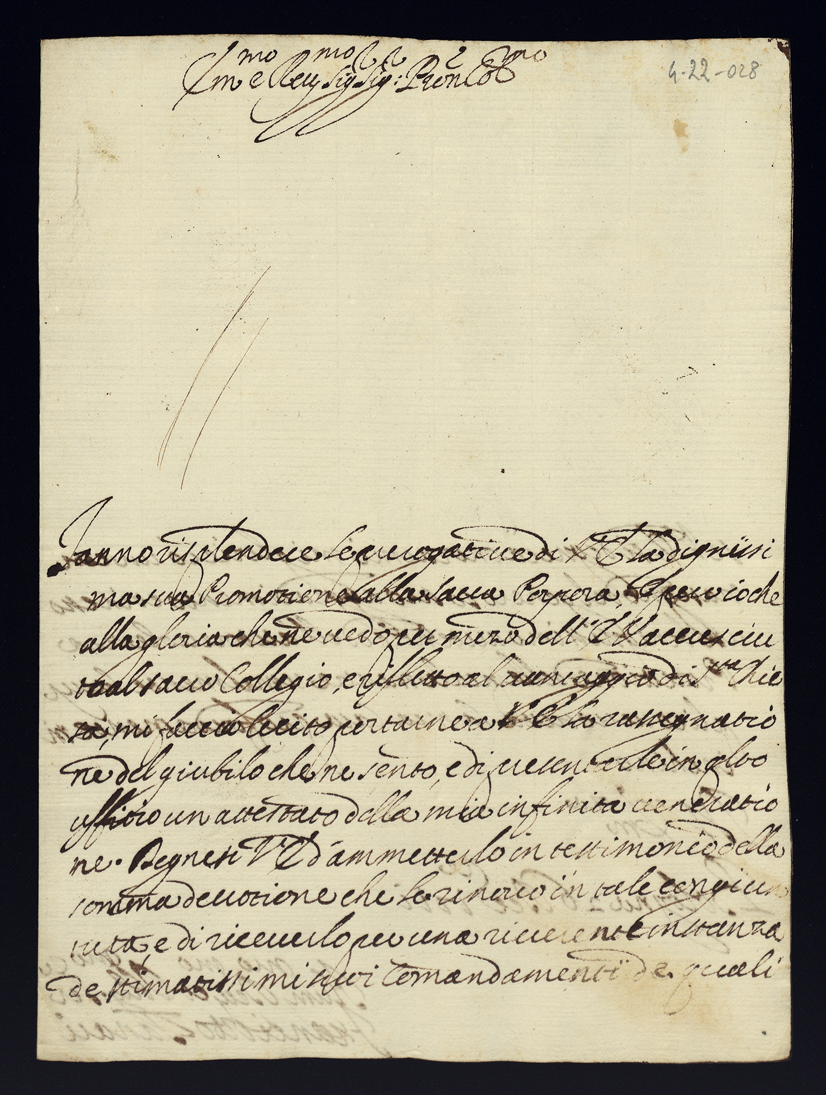 4-22-028
Em.mo e Reu.mo Sig.r Sig.r Pron Col.mo
Fanno risplendere le prerogatiue di V.E. la digniss̃i
ma sua Promotione alla sacra Porpora, e perciò che
alla gloria che ne uedo per mezo dell' E.V. accresciu
to al sacro Collegio, e rifletto al uantaggio di S.ta Chie
sa, mi faccio lecito portarne a V.E. la rassegnatio
ne del giubilo che ne sento, e di presentarle in
uffitio un attestato della mia infinita ueneratio
ne. Degnesi V.E. d'ammetterlo in testimonio della
somma deuotione che le rinouo in tale congiun
tura, e di riceuerlo per una riuerente instanza
de stimatissimi suoi Comandamenti de quali